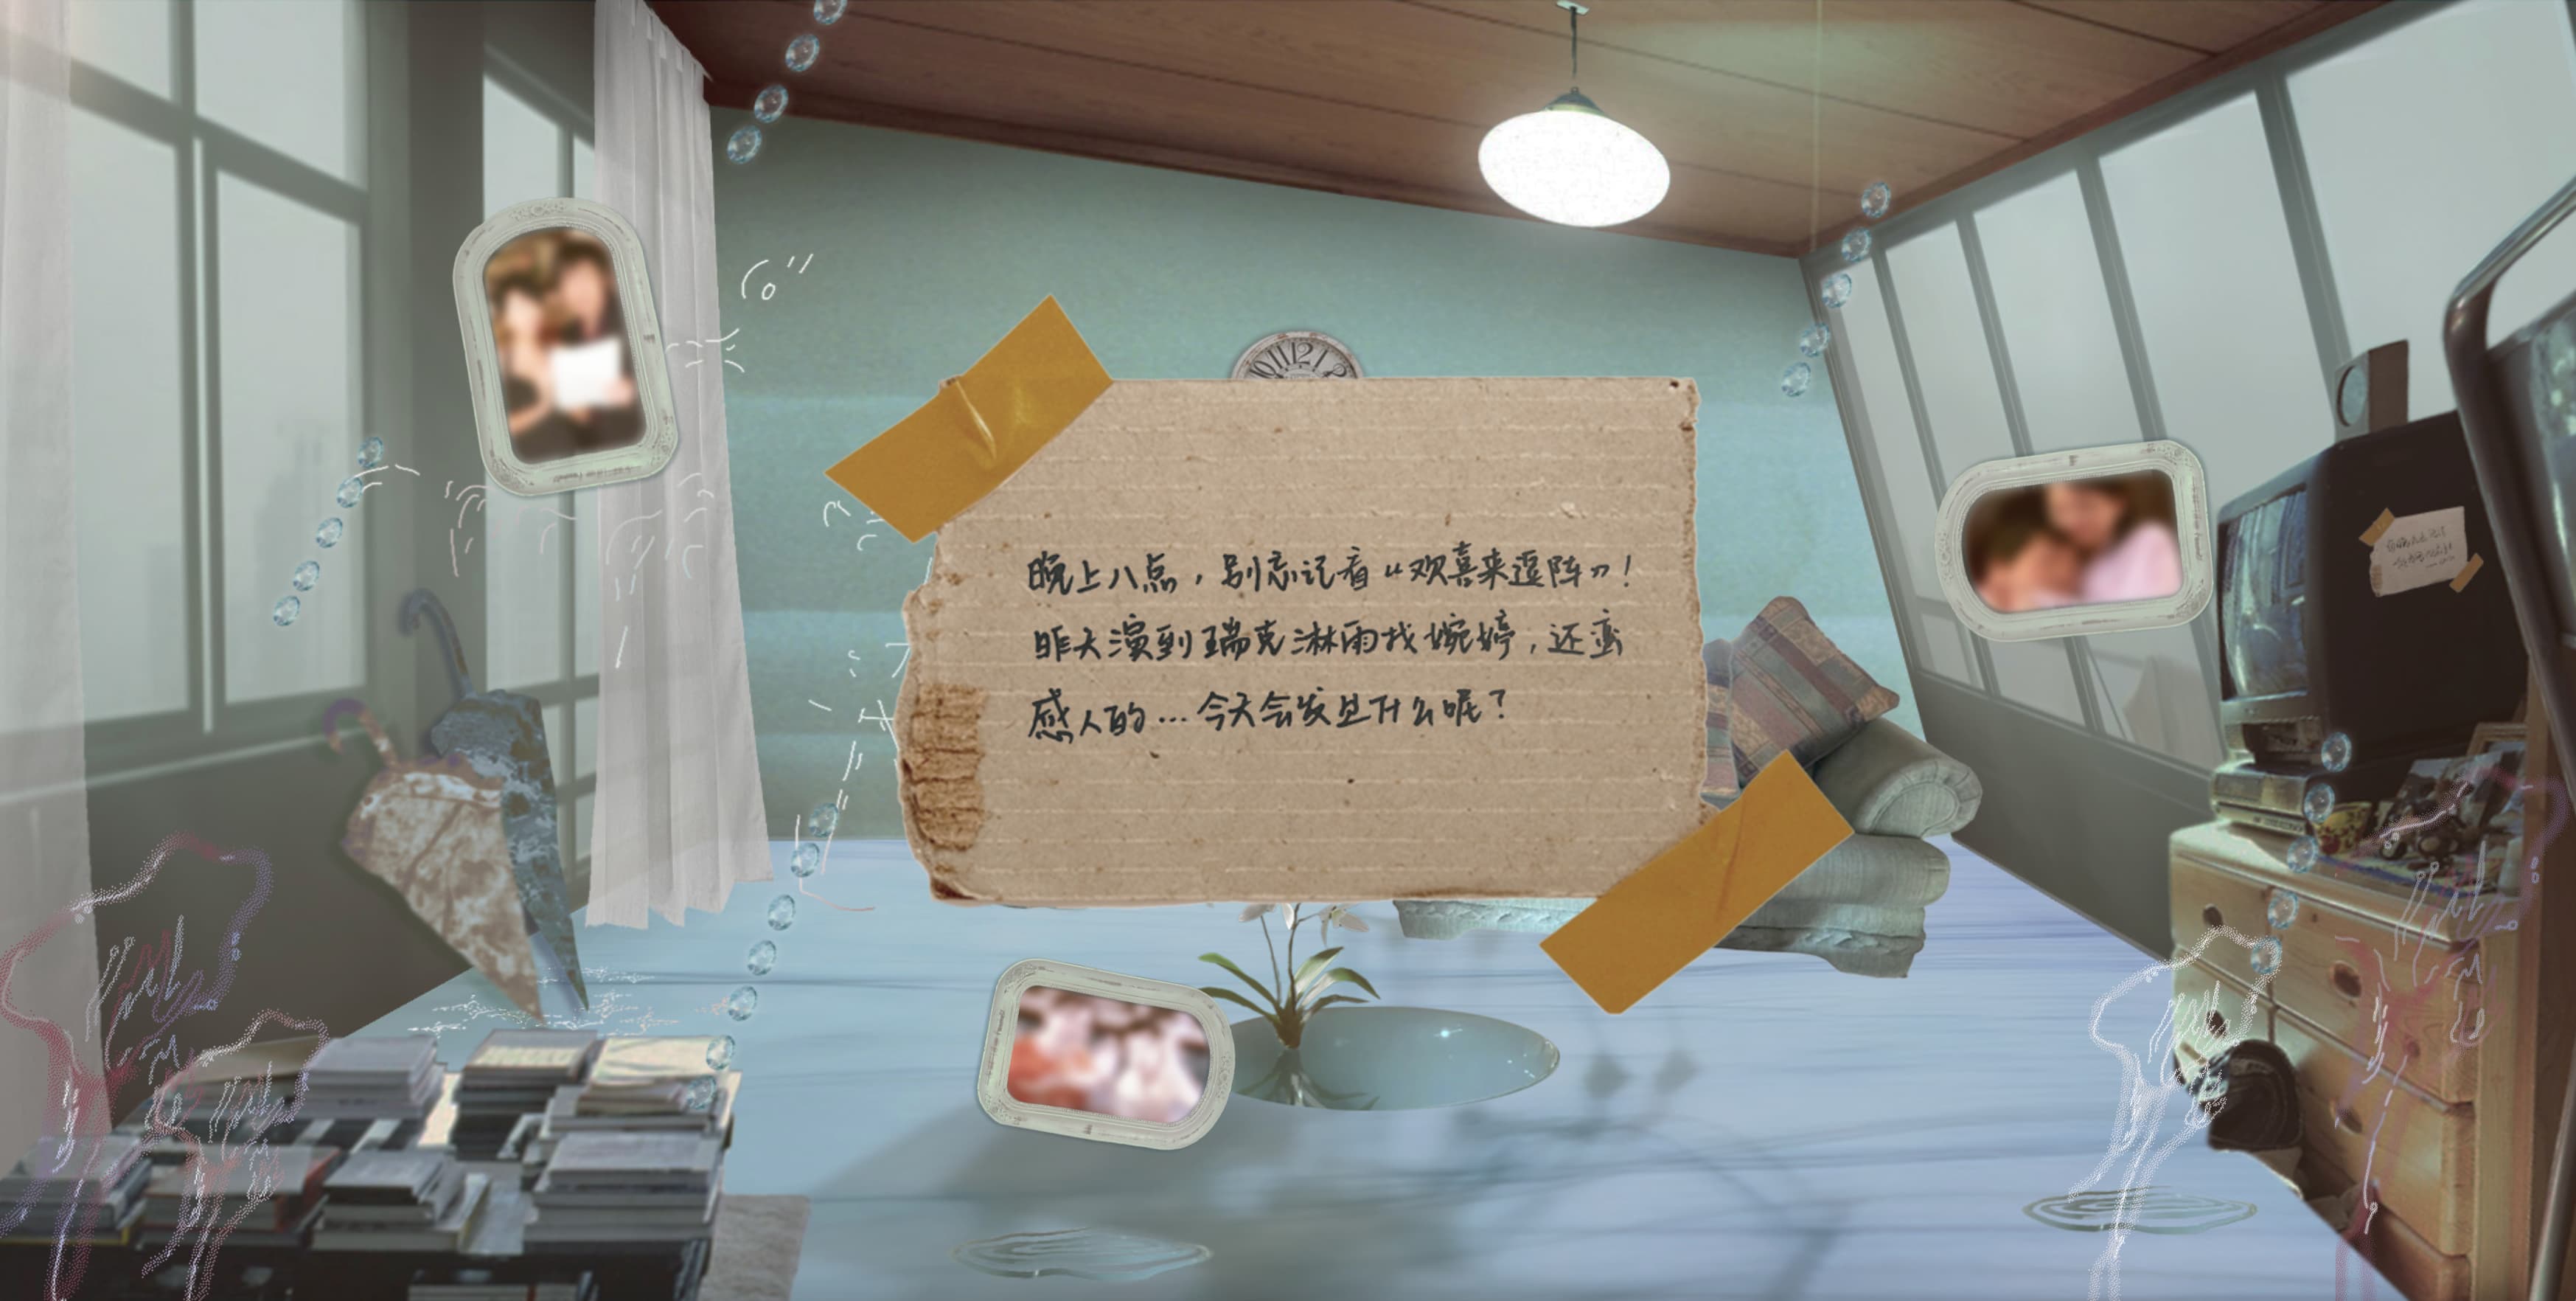 晚上八点，别忘记看“欢喜来逗阵”！
昨天演到瑞克淋雨找婉婷，还蛮
感人的...今天会发生什么呢？
10 11 12 1 2